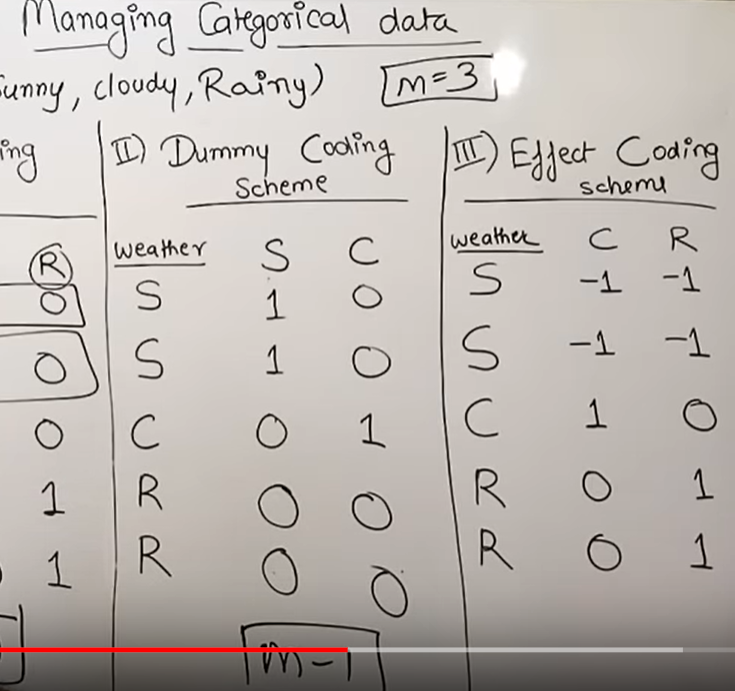 Managing Categorical data
Sunny, cloudy, Rainy) m=3
ing
R
0
0
0
1
1
II) Dummy Coding
Scheme
weather S C
S 1 0
S 1 0
C 0 1
R 0 0
R 0 0
m-1
III) Effect Coding
scheme
weather C R
S -1 -1
S -1 -1
C 1 0
R 0 1
R 0 1